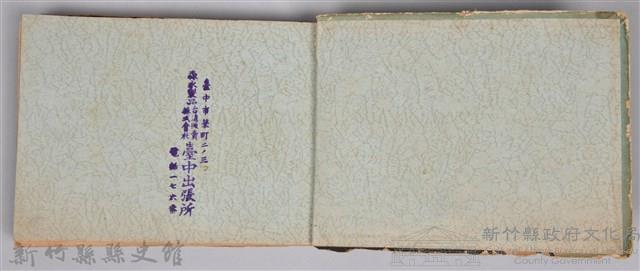 臺中市榮町二ノ三
森永製品台灣販賣株式會社臺中出張所
電話一七六番
新竹縣縣史館
新竹縣政府文化局
County Government